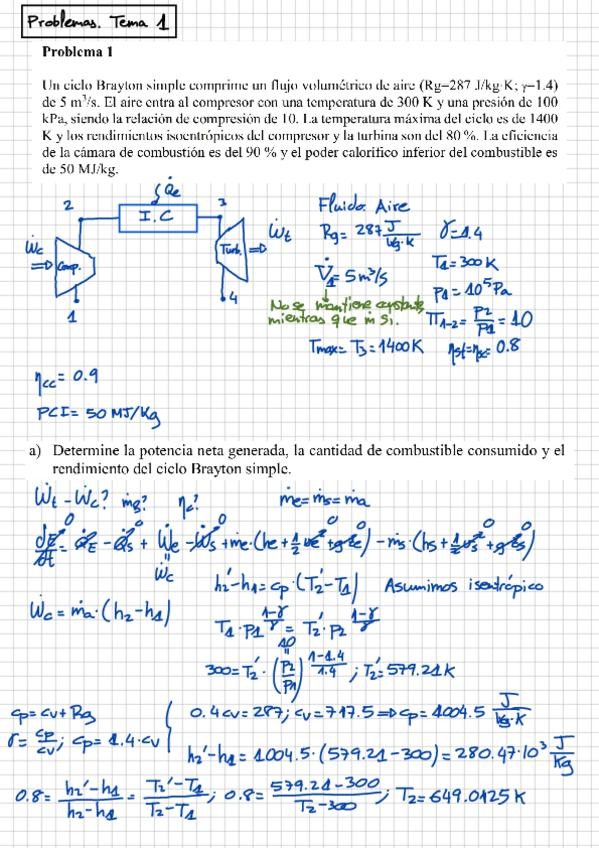 Problemas. Tema 1
Problema 1
Un ciclo Brayton simple comprime un flujo volumétrico de aire (Rg=287 J/kg·K; γ=1.4)
de 5 m³/s. El aire entra al compresor con una temperatura de 300 K y una presión de 100
kPa, siendo la relación de compresión de 10. La temperatura máxima del ciclo es de 1400
K y los rendimientos isoentrópicos del compresor y la turbina son del 80 %. La eficiencia
de la cámara de combustión es del 90 % y el poder calorífico inferior del combustible es
de 50 MJ/kg.
Q̇e
2
I.C
3
Ẇc
Comp.
Turb.
Ẇt
1
4
Fluido: Aire
Rg = 287 J/kg·K
γ=1.4
V̇1 = 5m³/s
T1=300K
P1=10⁵Pa
No se mantiene constante,
mientras que ṁ sí.
π1-2 = P2/P1 = 10
Tmax = T3 = 1400K
ηst=ηsc= 0.8
ηcc = 0.9
PCI = 50 MJ/Kg
a) Determine la potencia neta generada, la cantidad de combustible consumido y el
rendimiento del ciclo Brayton simple.
Ẇt - Ẇc?
ṁe=ṁs=ṁa
dE/dt = Q̇E - Q̇s + Ẇe - Ẇs + ṁe·(he + 1/2 ve² + gze) - ṁs·(hs + 1/2 vs² + gzs)
0 0 0 0 0 0 0 0
Ẇc
h2'-h1 = cp·(T2'-T1) Asumimos isentrópico
Ẇc = ṁa·(h2-h1)
T1·P1^(1-γ)/γ = T2'·P2^(1-γ)/γ
10
300 = T2'·(P2/P1)^(1-1.4)/1.4; T2'=579.21K
cp = cv + Rg
γ = cp/cv; cp = 1.4·cv
0.4cv = 287; cv = 717.5 => cp = 1004.5 J/kg·K
h2'-h1 = 1004.5·(579.21-300) = 280.47·10³ J/kg
0.8 = (h2'-h1)/(h2-h1) = (T2'-T1)/(T2-T1); 0.8 = (579.21-300)/(T2-300); T2=649.0125K